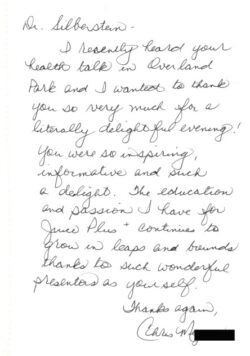 Dr. Silberstein -
I recently heard your
health talk in Overland
Park and I wanted to thank
you so very much for a
literally delightful evening!
You were so inspiring,
informative and such
a delight. The education
and passion I have for
Juice Plus+ continues to
grow in leaps and bounds
thanks to such wonderful
presenters as yourself.
Thanks again,
Chris